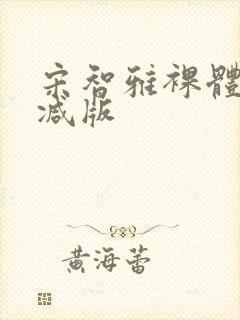 宋智雅裸體
减版
黄海蕾